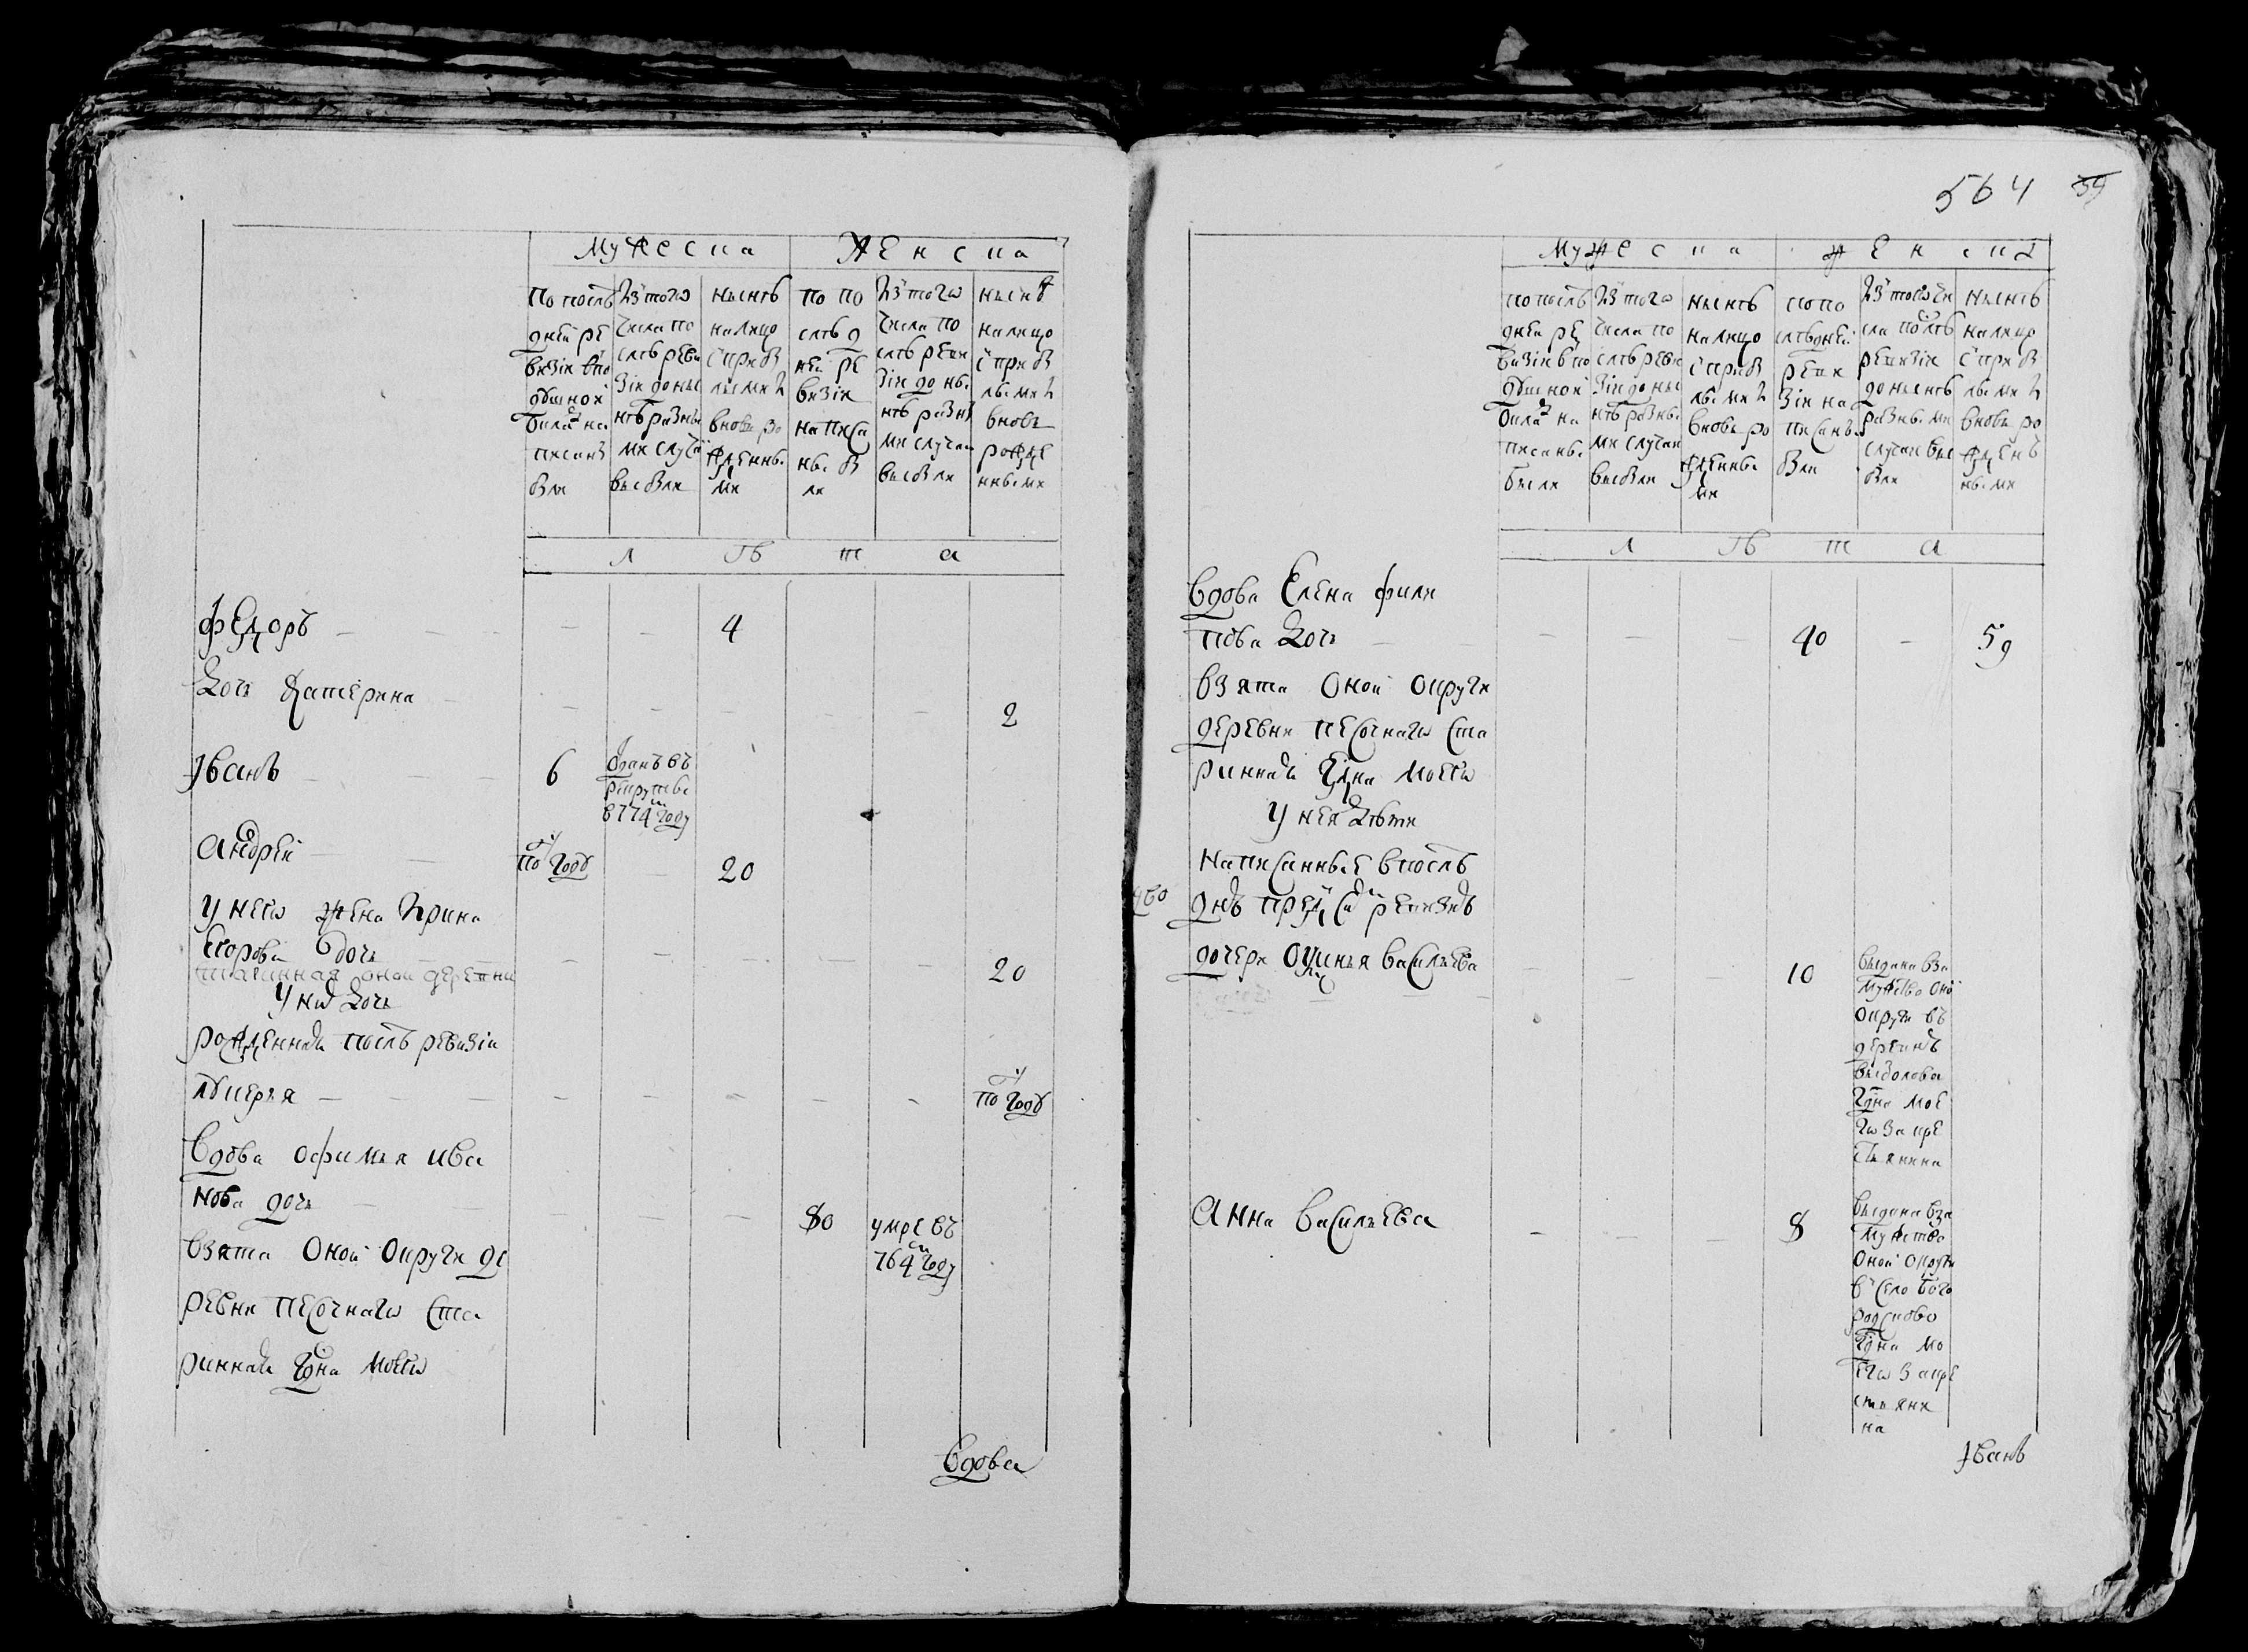 564 39
Мужеска Женска
По послѣ
дней ре
визіи въ по
душной
окладъ на
писаны
были
Изъ того
числа по
слѣ реви
зіи до ны
нѣ разны
ми случаи
выбыли
нынѣ
налицо
съ прибы
лыми и
вновь ро
жденны
ми
по по
слѣд
ней ре
визіи
написа
ны бы
ли
Изъ того
числа по
слѣ реви
зіи до ны
нѣ разны
ми случаи
выбыли
нынѣ
налицо
съ прибы
лыми и
вновь
рожде
нными
Л ѣ т а
Федоръ — 4
Дочь Катерина — 2
Іванъ — 6
Отданъ въ
рекруты
в 774м году
Андрей
по году 20
У него жена Ирина
Егорова дочь 20
старинная оной деревни
У них дочь
рожденная послѣ ревизіи
Лукерья — по году
Вдова Офимья Ива
нова дочь — 80 умре въ
764м году
Взята Оной Округи де
ревни Песочнаго Ста
ринная Гдна Моего
Вдова
Мужеска Женска
по послѣ
дней ре
визіи в по
душной
оклад на
писаны
были
Изъ того
числа по
слѣ реви
зіи до ны
нѣ разны
ми случаи
выбыли
нынѣ
налицо
съ прибы
лыми и
вновь ро
жденны
ми
по по
слѣдней
реви
зіи на
писаны
были
Изъ того чи
сла послѣ
ревизіи
до нынѣ
разными
случаи вы
были
нынѣ
налицо
съ прибы
лыми и
вновь ро
жден
ными
Л ѣ т а
Вдова Елена Фили
пова Дочь — 40 — 59
Взята Оной Округи
деревни Песочнаго Ста
ринная Гдна Моего
У нея Дѣти
Написанные в послѣ
днѣ пред сей ревизіи
дочери Оксинья Васильева 10
выдана вза
мужство Оной
Округи въ
деревнѣ
выдолова
Гдна мое
го за кре
стьянина
Анна Васильева 8
выдана вза
мужство
Оной Округи
в село Бого
родсково
Гдна мо
его за кре
стьяни
на
Іванъ